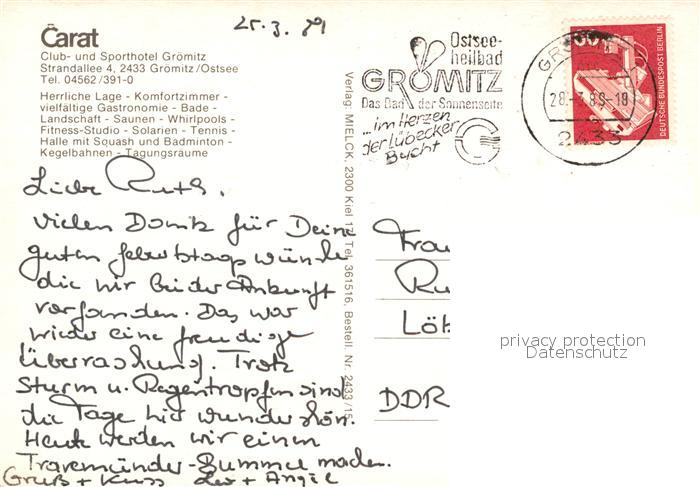 25.3.89
Carat
Club- und Sporthotel Grömitz
Strandallee 4, 2433 Grömitz/Ostsee
Tel. 04562/391-0
Herrliche Lage - Komfortzimmer -
vielfältige Gastronomie - Bade -
Landschaft - Saunen - Whirlpools -
Fitness-Studio - Solarien - Tennis -
Halle mit Squash und Badminton -
Kegelbahnen - Tagungsräume
Liebe Ruth,
vielen Dank für Deine
guten Geburtstagswünsche
die wir bei der Ankunft
vorfanden. Das war
wieder eine freudige
Überraschung. Trotz
Sturm u. Regentropfen sind
die Tage hier wunderschön.
Heute werden wir einen
Travemünder-Bummel machen.
Gruß + Kuss
Verlag: MIELCK, 2300 Kiel 17, Tel. 361516, Bestell. Nr. 2433/15
Ostsee-
heilbad
GRÖMITZ
Das Bad der Sonnenseite
...im Herzen
der Lübecker
Bucht
GRÖ
2433
60
DEUTSCHE BUNDESPOST BERLIN
Frau
Ru
Löb
DDR
privacy protection
Datenschutz